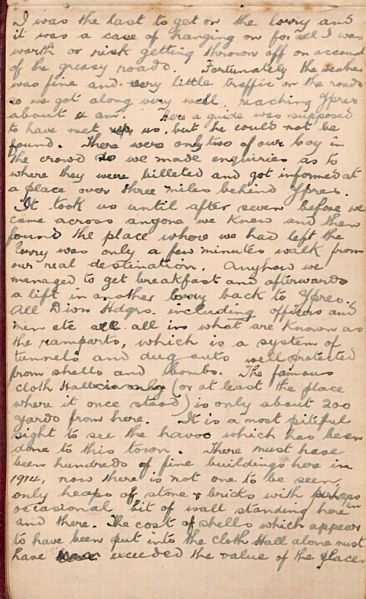 I was the last to get on the lorry and
it was a case of hanging on for all I was
worth or risk getting thrown off on account
of the greasy roads. Fortunately the weather
was fine and very little traffic on the roads
so we got along very well reaching Ypres
about 4 am. Here a guide was supposed
to have met us, but he could not be
found. There were only two of our boy in
the crowd so we made enquiries as to
where they were billeted and got informed at
a place over three miles behind Ypres.
It took us until after seven before we
came across anyone we knew and then
found the place where we had left the
lorry was only a few minutes walk from
our real destination. Anyhow we
managed to get breakfast and afterwards
a lift in another lorry back to Ypres.
All Divn Hdqrs. including officers and
men etc are all in what are known as
the ramparts, which is a system of
tunnels and dug outs well protected
from shells and bombs. The famous
Cloth Hall (or at least the place
where it once stood) is only about 200
yards from here. It is a most pitiful
sight to see the havoc which has been
done to this town. There must have
been hundreds of fine buildings here in
1914, now there is not one to be seen,
only heaps of stone & bricks with perhaps an
occasional bit of wall standing here
and there. The cost of shells which appear
to have been put into the Cloth Hall alone must
have exceeded the value of the place.